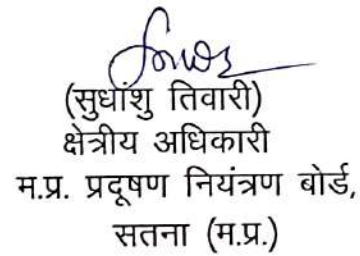 (सुधांशु तिवारी)
क्षेत्रीय अधिकारी
म.प्र. प्रदूषण नियंत्रण बोर्ड,
सतना (म.प्र.)